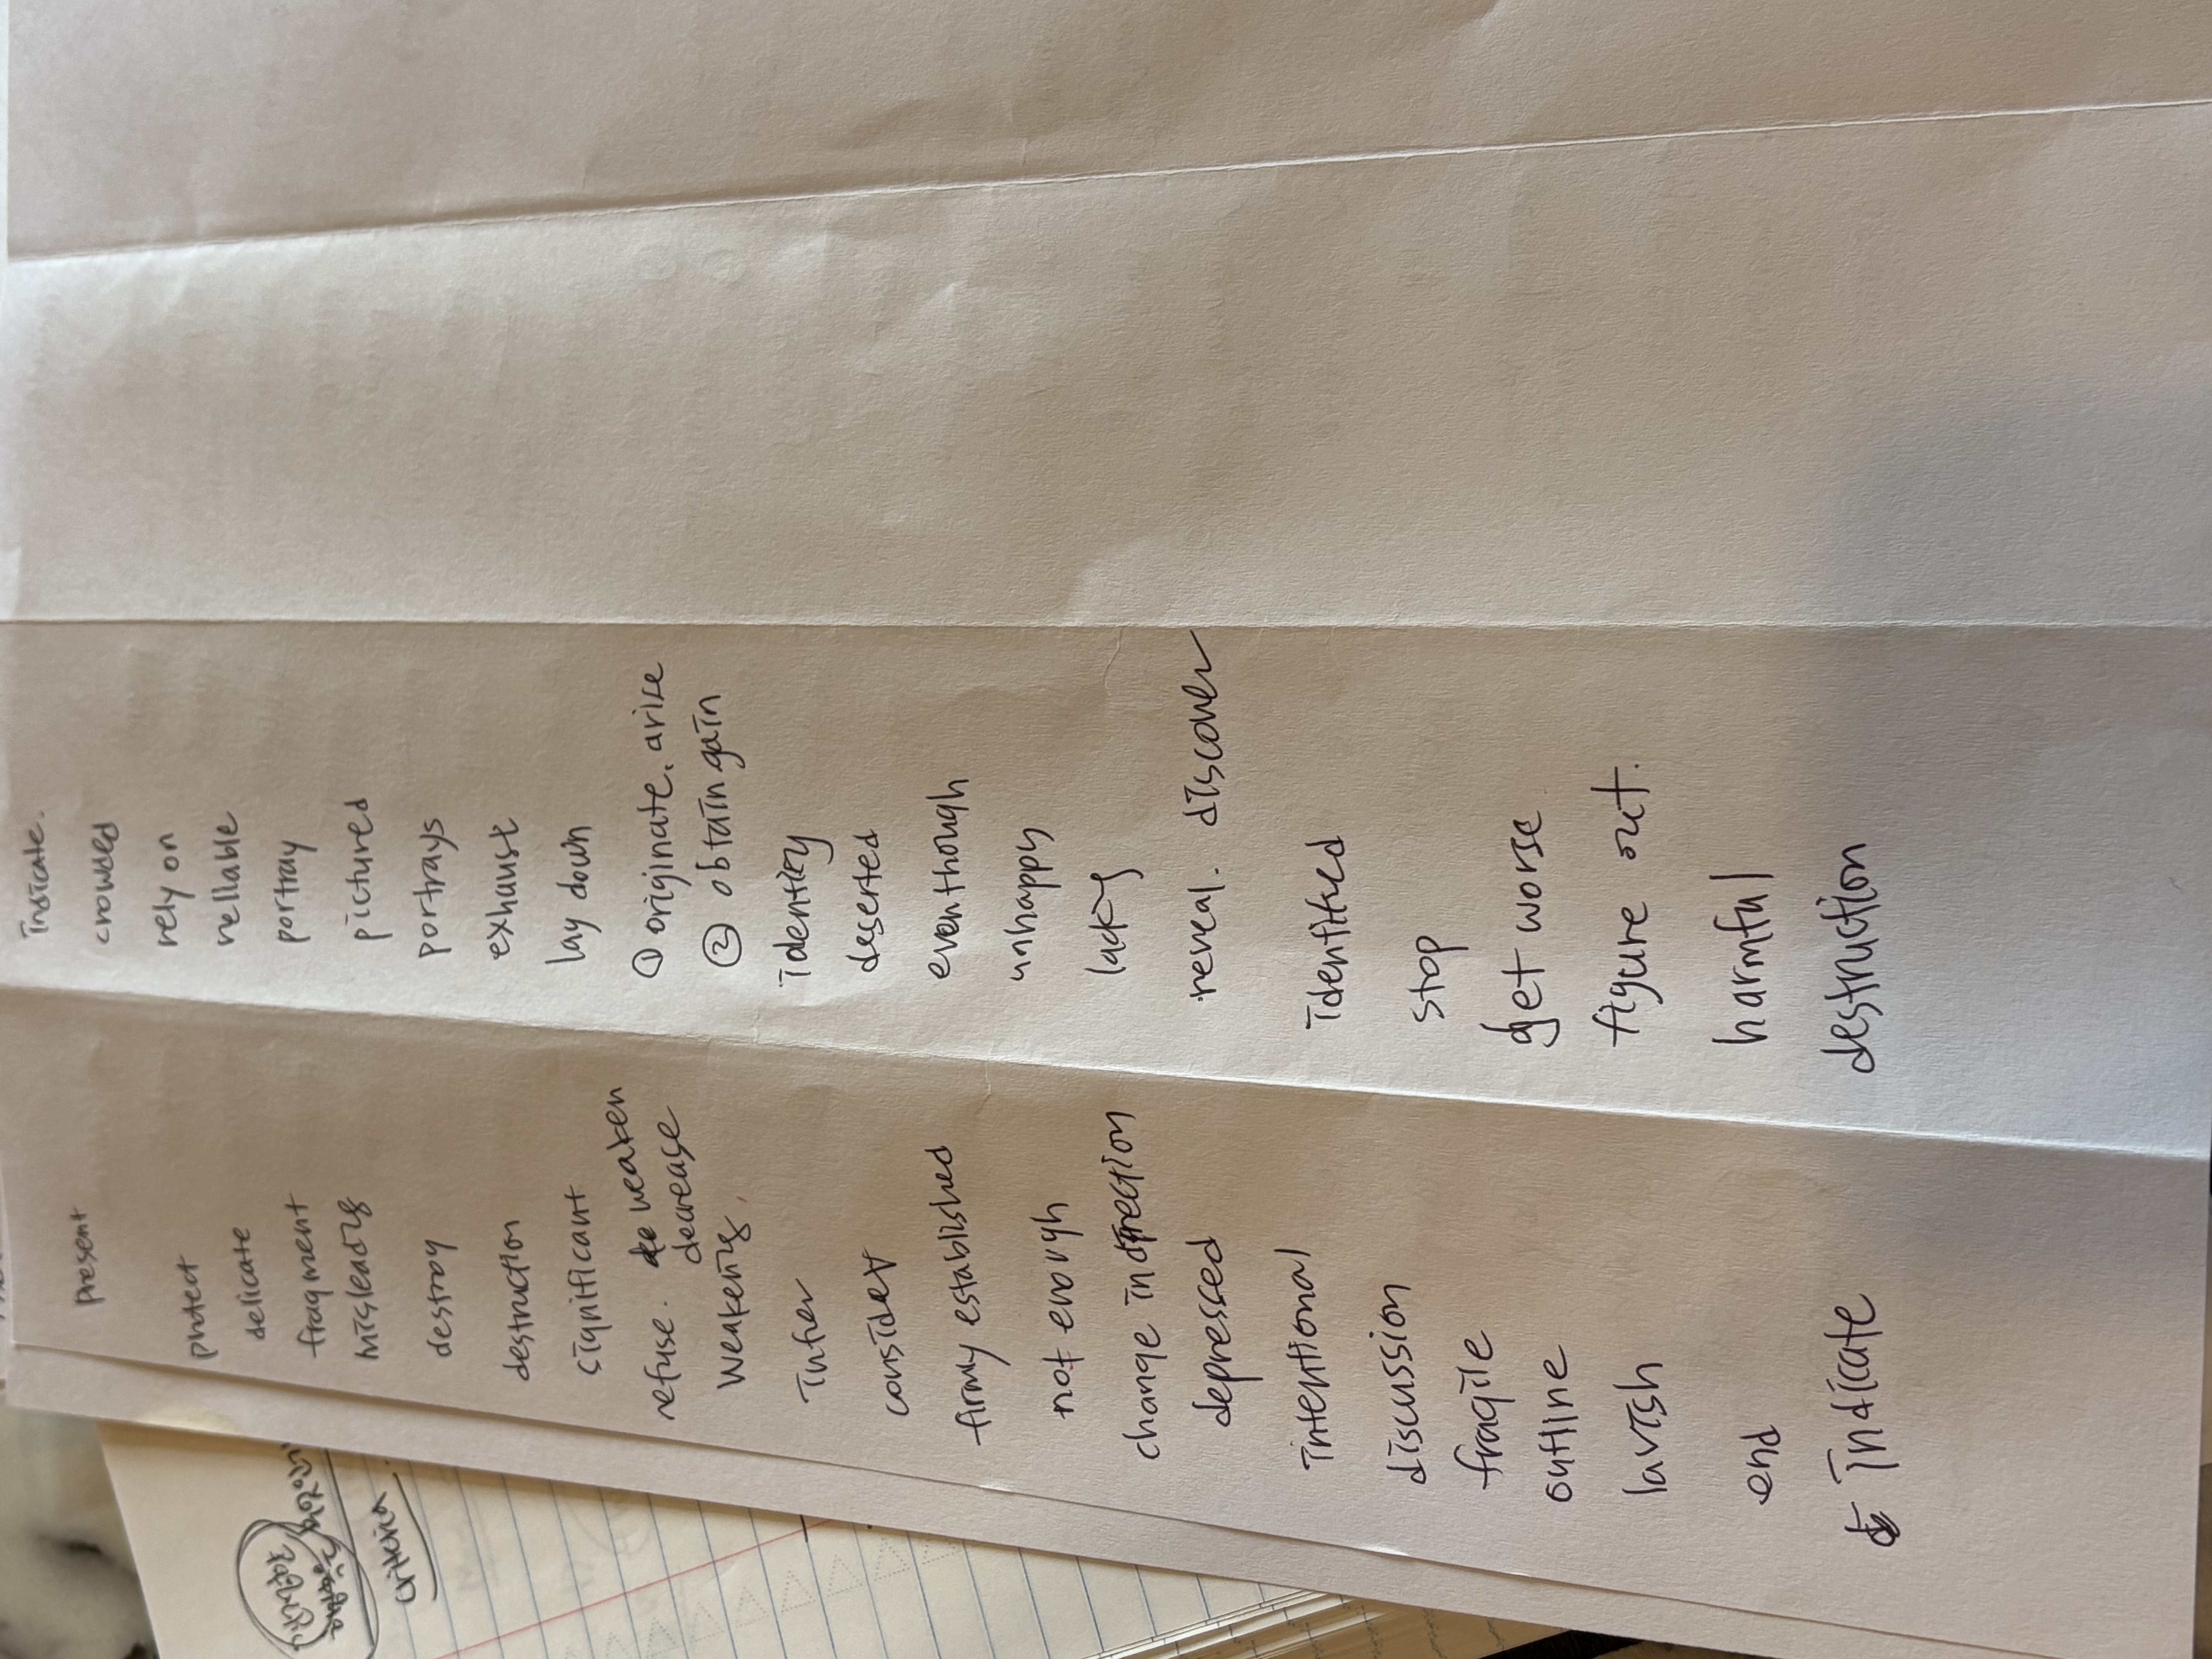 present
protect
delicate
fragment
misleading
destroy
destruction
significant
refuse. weaken
decrease
weakening.
infer
consider
firmly established
not enough
change in direction
depressed
intentional
discussion
fragile
outline
lavish
end
indicate
indicate.
crowded
rely on
reliable
portray
pictured
portrays
exhaust
lay down
① originate. arise
② obtain gain
identity
deserted
eventhough
unhappy
lacking
reveal. discover
identified
stop
get worse
figure out.
harmful
destruction
criteria